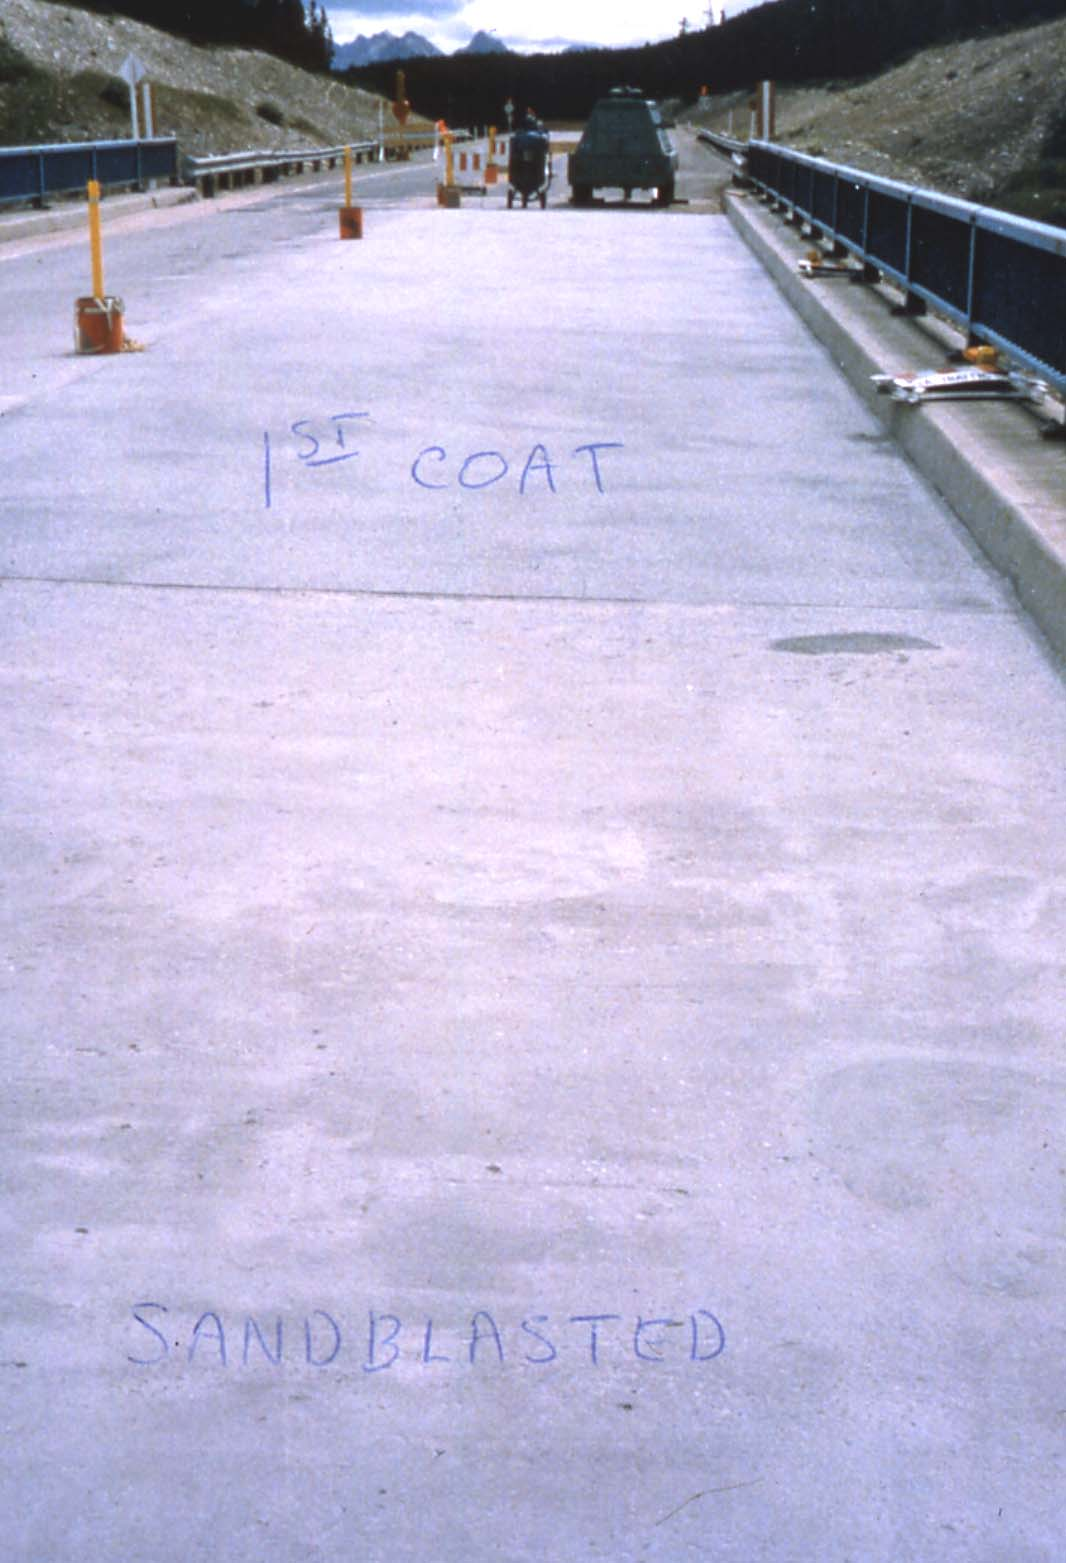 1ST COAT
SANDBLASTED